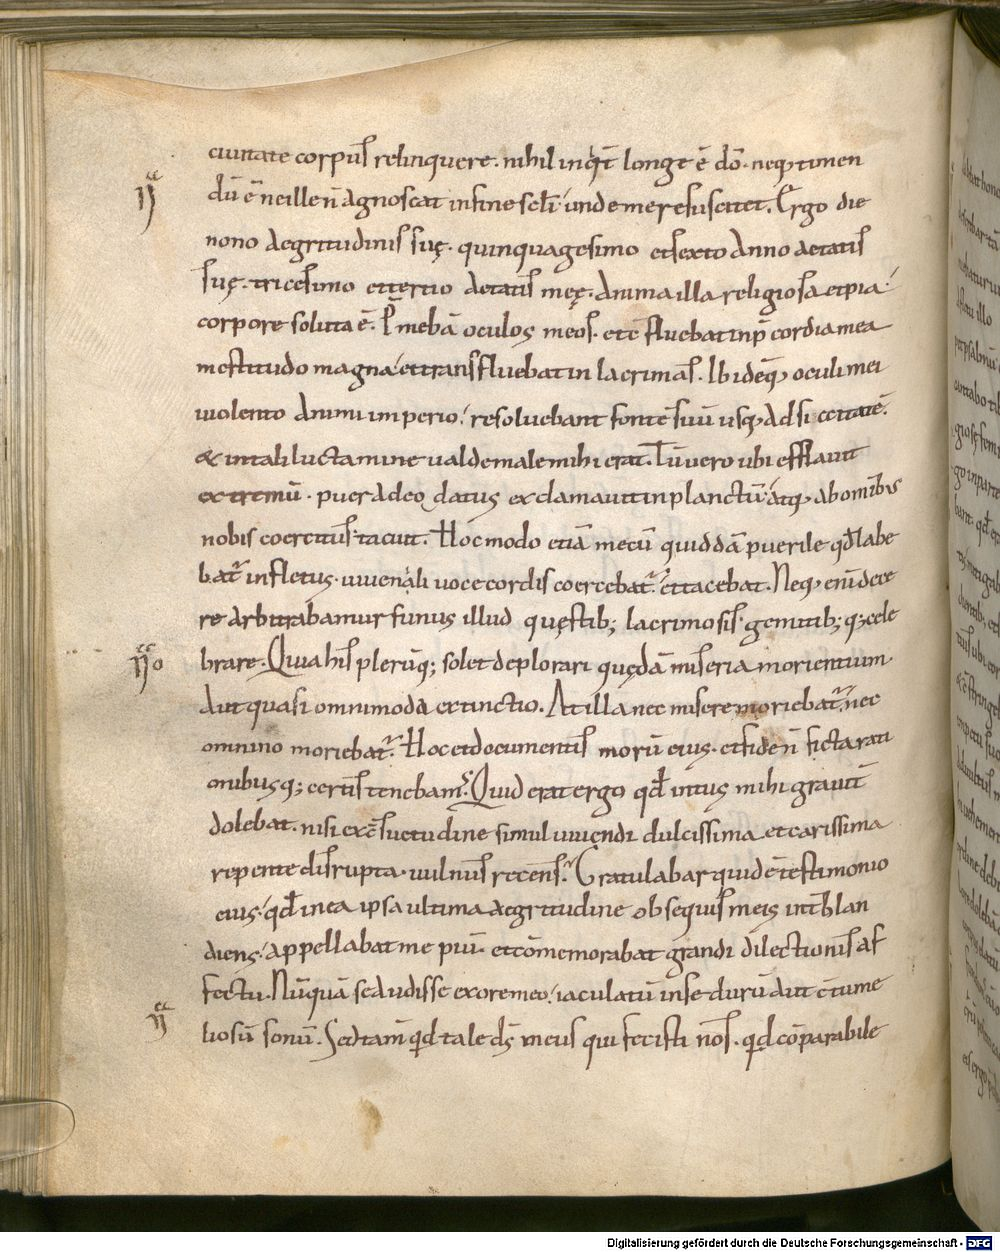 ciuitate corpus relinquere. nihil inq̇t longe ē dō. neq; timen
dū ē ne ille ñ agnoscat in fine scłi unde me resuscitet. Ergo die
nono aegritudinis suę. quinquagesimo et sexto anno aetatis
suę. tricesimo et tertio aetatis meę. anima illa religiosa et pia
corpore soluta ē. P̄mebā oculos meos. et c̄fluebat in p̄cordia mea
mestitudo magna et transfluebat in lacrimas. Ibideq; oculi mei
uiolento animi imperio. resoluebant fontē suū usq; ad siccitatē.
& in tali luctamine ualde male mihi erat. Tū uero ubi efflauit
extremū. puer adeodatus exclamauit in planctū atq; ab omnibus
nobis coercitus tacuit. Hoc modo etiā mecū quiddā puerile qđ labe
bat̄ in fletus. iuuenali uoce cordis coercebat̄ et tacebat. Neq; eni dece
re arbitrabamur funus illud quęstib; lacrimosis gemitib; q; cele
brare. Quia his plerūq; solet deplorari quędā miseria morientium
aut quasi omnimoda extinctio. At illa nec misere moriebat̄ nec
omnino moriebat̄. Hoc et documentis morū eius. et fide ñ ficta rati
onibusq; certis tenebam̄. Quid erat ergo qđ intus mihi grauit̄
dolebat. nisi ex c̄suetudine simul uiuendi dulcissima et carissima
repente disrupta uulnus recens. Gratulabar quidē testimonio
eius. qđ in ea ipsa ultima aegritudine obsequiis meis int̄blan
diens. appellabat me piū. et cōmemorabat grandi dilectionis af
fectu. Nūquā se audisse ex ore meo. iaculatū in se durū aut c̄tume
liosū sonū. Sed tam̄ qid tale ds̄ meus qui fecisti nos. qid cōparabile
Digitalisierung gefördert durch die Deutsche Forschungsgemeinschaft - DFG